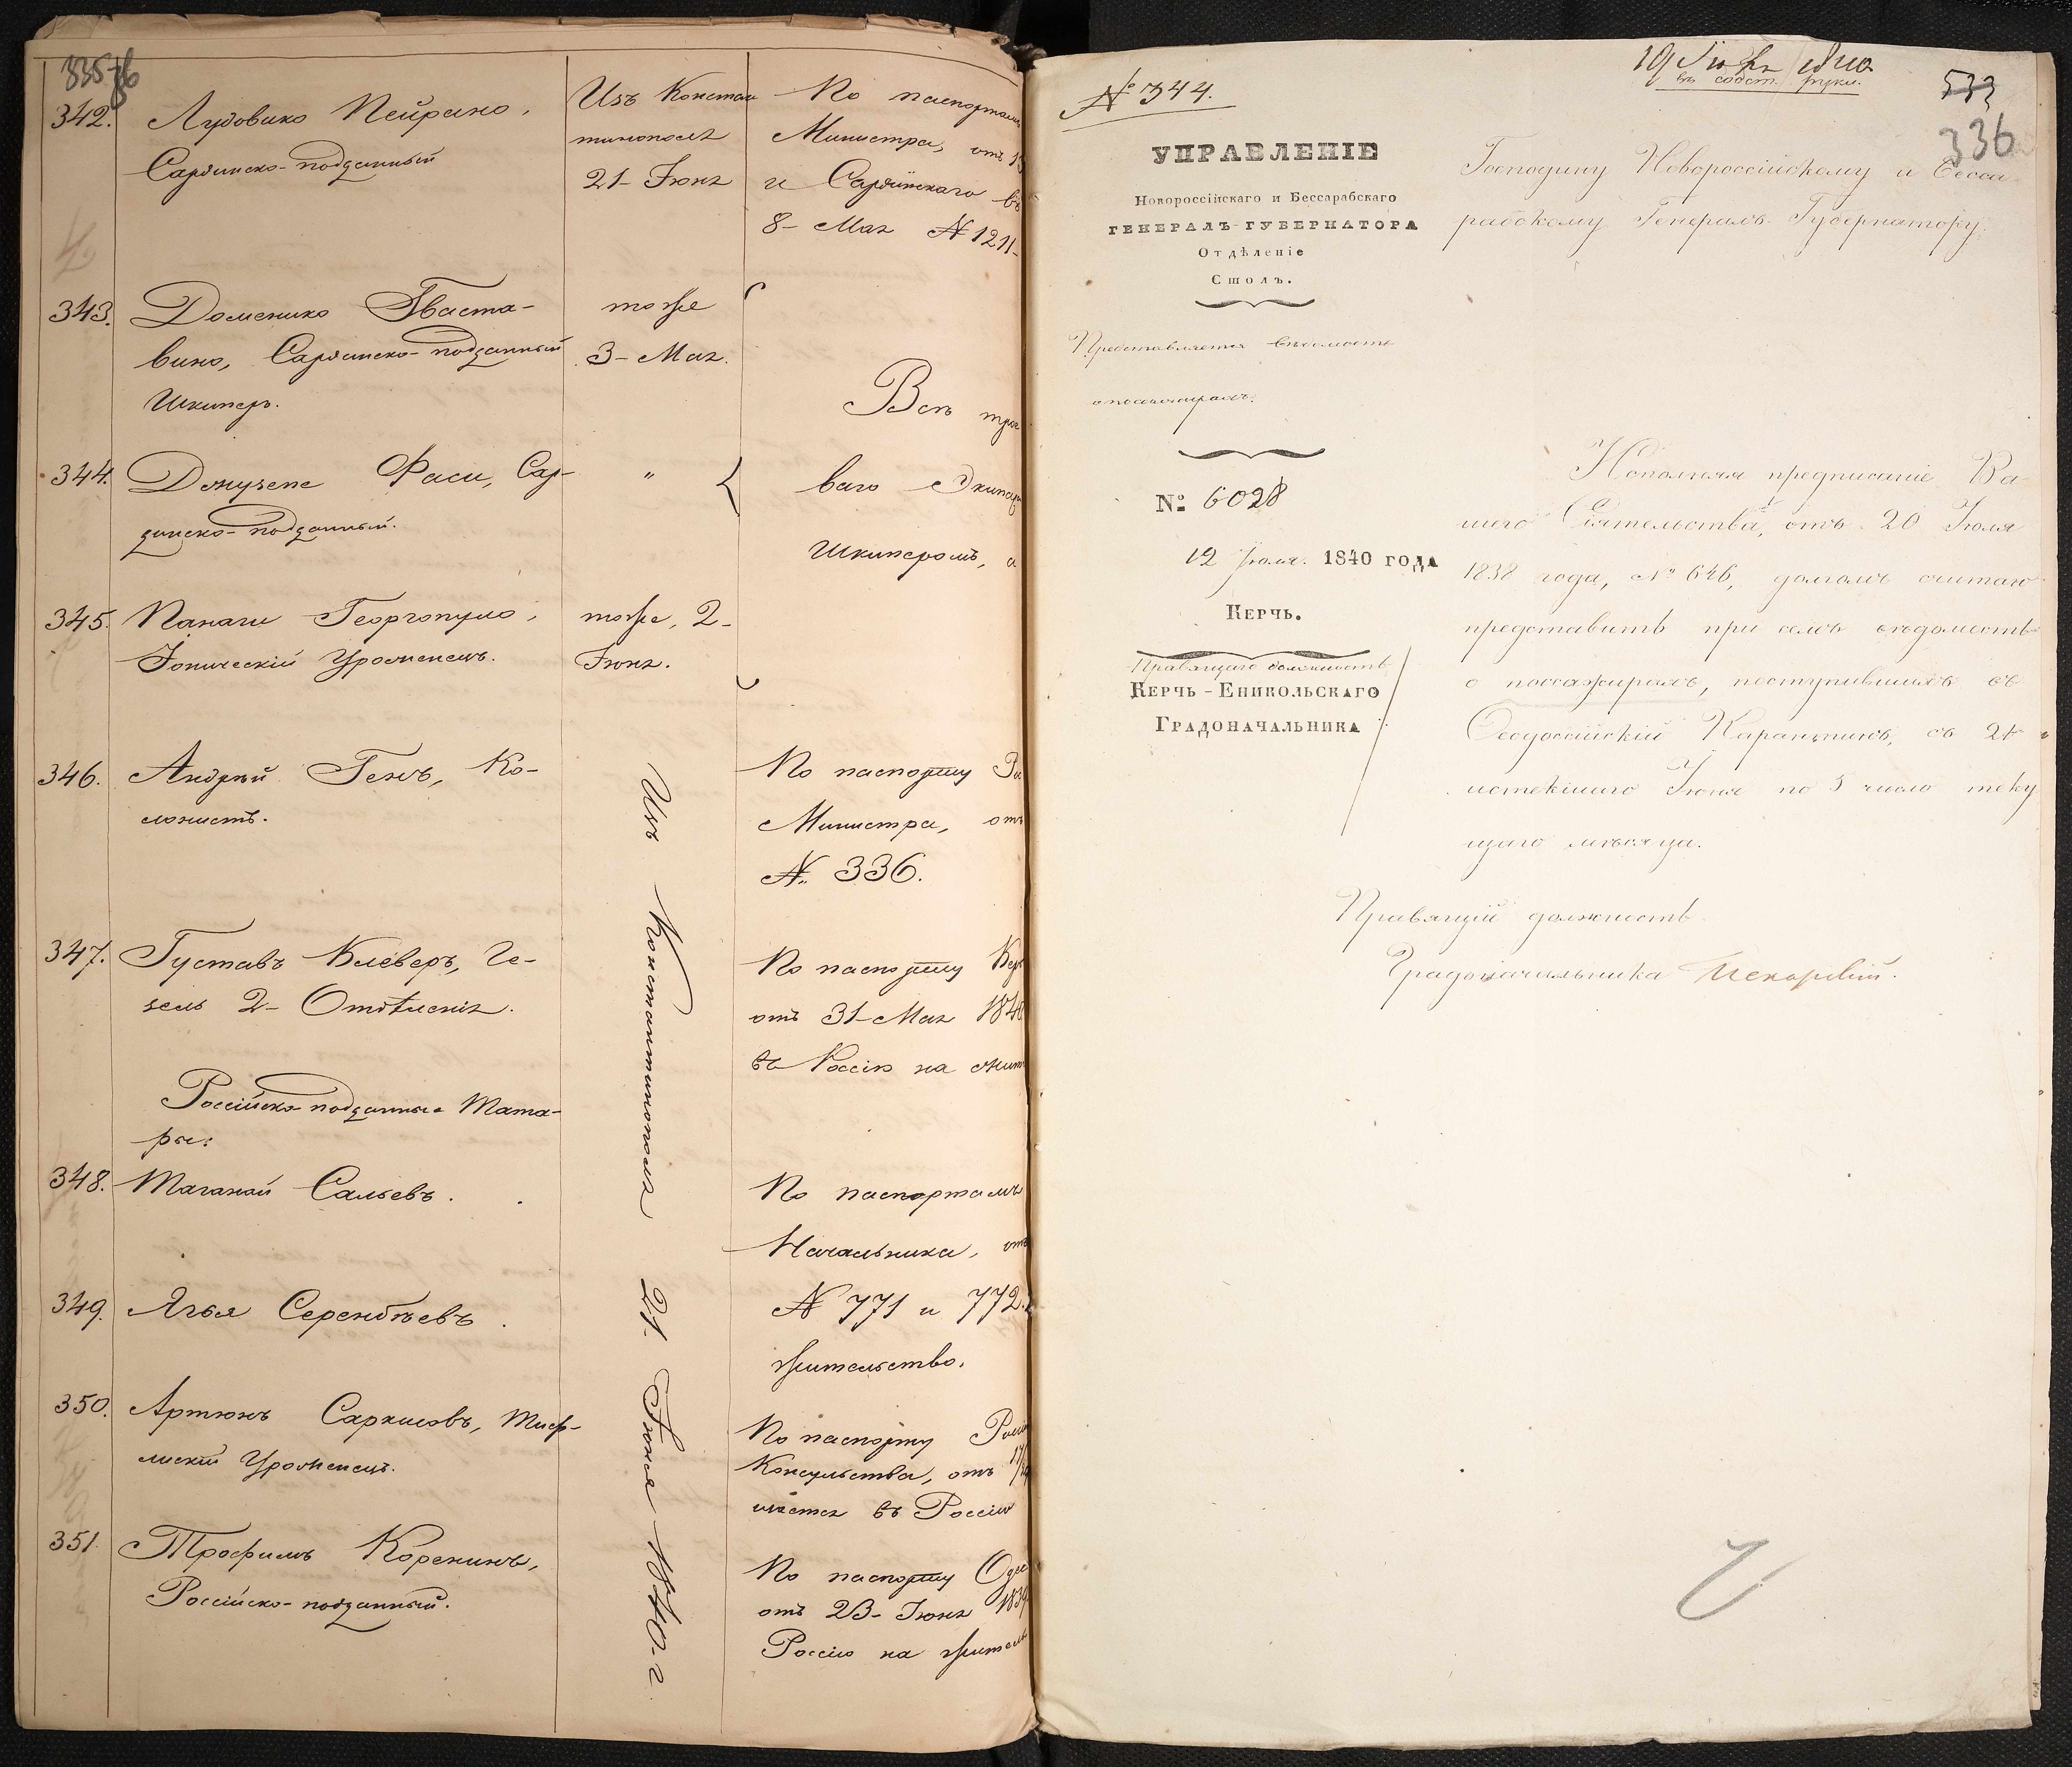 342. Лудовико Пейрано,
Сардинско-подданный
Изъ Констан
тинополя
21- Іюня
По паспортамъ
Министра, отъ
и Сардинскаго въ
8- Мая № 1211-
343. Доменико Гваста-
вино, Сардинско-подданный
Шкиперъ.
тоже
3- Мая.
Всѣ трое
344. Джузепе Фаси, Сар-
динско-подданный.
"
ваго Экипа
Шкиперомъ, а
345. Панаги Георгопуло,
Іоническій Уроженецъ.
тоже, 2-
Іюня.
346. Андрей Генъ, Ко-
лонистъ.
По паспорту
Министра, отъ
№ 336.
347. Густавъ Клеверъ, Ге-
зель 2- Отдѣленія.
По паспорту Кер
отъ 31- Мая 1840
въ Россію на жит
Россійско-подданные Тата-
ры:
348. Таганай Сальевъ.
По паспортамъ
Начальника, отъ
349. Ягья Серенбѣевъ.
№ 771 и 772.
жительство.
350. Артюнъ Саркисовъ, Тиф-
лискій Уроженецъ.
По паспорту Россій
Консульства, отъ
щается въ Россію
351. Трофимъ Коренинъ,
Россійско-подданный.
По паспорту Одес
отъ 23- Іюня 1839
Россію на житель
Изъ Константинополя 21. Іюня 1840. г.
№ 344.
въ собст. руки.
533
336
УПРАВЛЕНІЕ
Новороссійскаго и Бессарабскаго
ГЕНЕРАЛЪ-ГУБЕРНАТОРА
Отдѣленіе
Столъ.
Представляется вѣдомость
о пассажирахъ.
№ 6028
12 Іюля. 1840 года
Керчь.
Правящаго должность
Керчь-Еникольскаго
Градоначальника
Господину Новороссійскому и Бесса
рабскому Генералъ-Губернатору.
Исполняя предписаніе Ва
шего Сіятельства, отъ 20 Іюля
1838 года, № 646, долгомъ считаю
представить при семъ вѣдомость
о пассажирахъ, поступившихъ въ
Ѳеодосійскій Карантинъ, съ 24
истекшаго Іюня по 5 число теку
щаго мѣсяца.
Правящій должность
Градоначальника